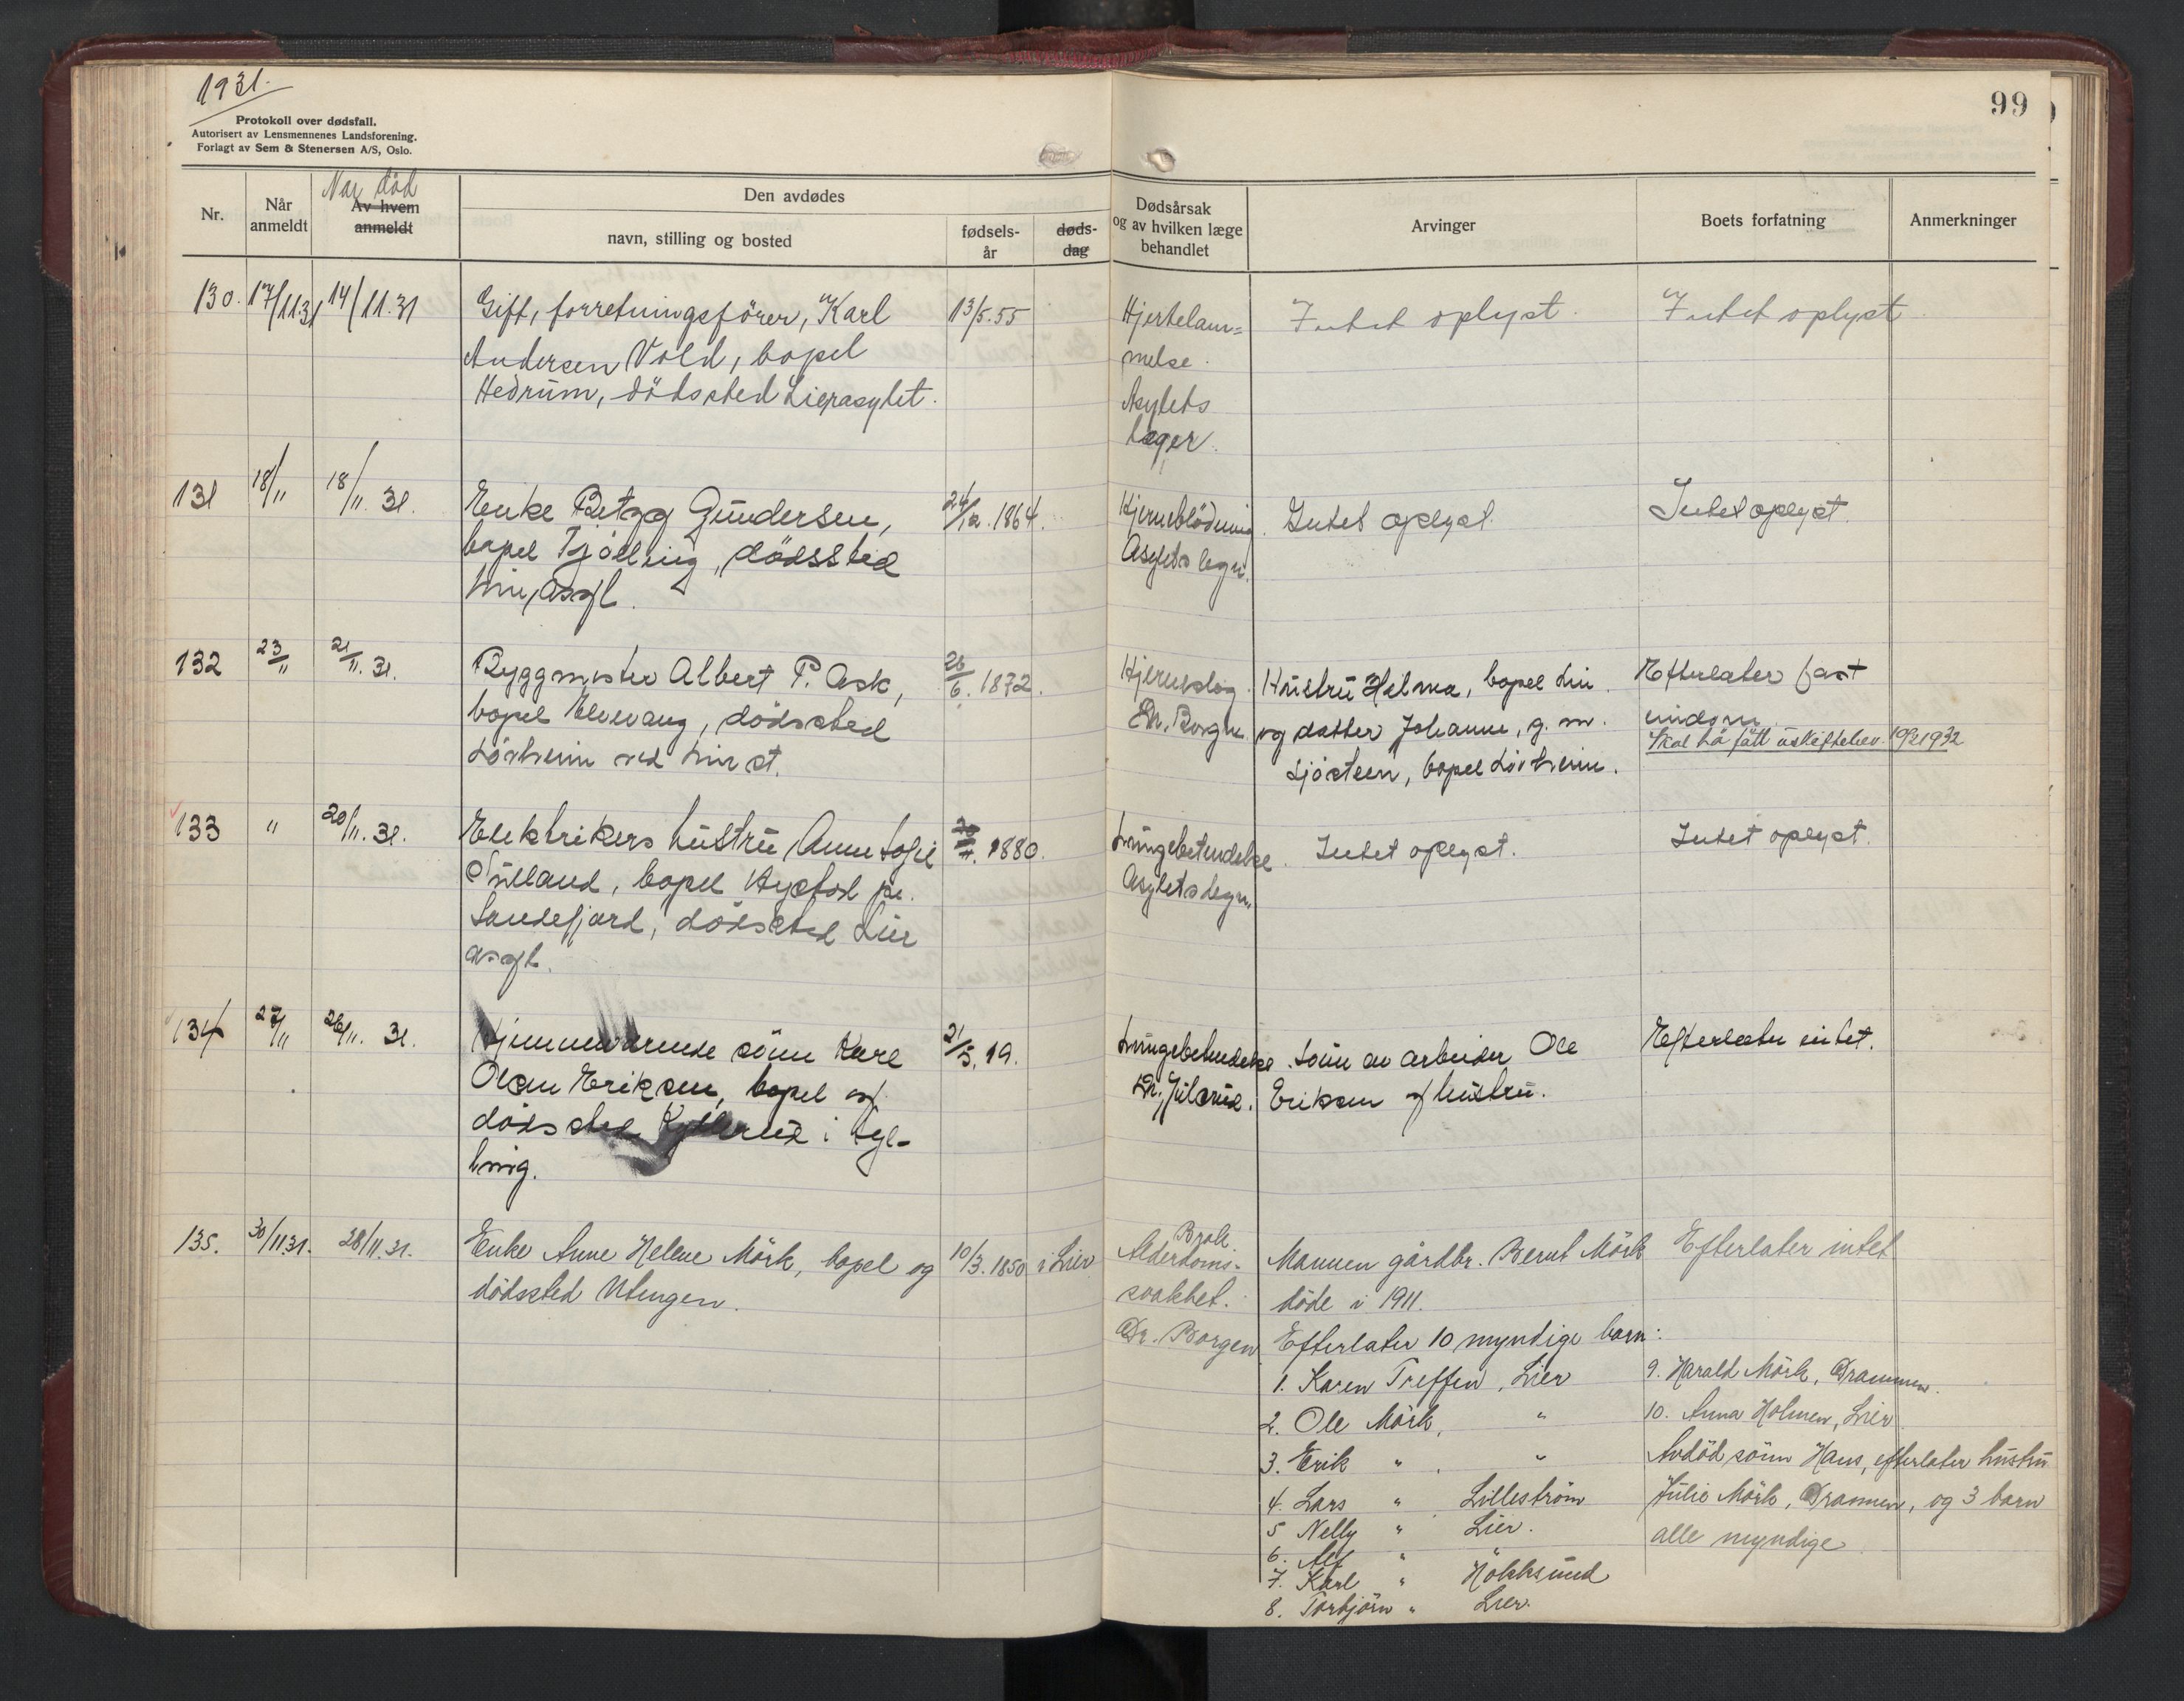 1931.
Protokoll over dødsfall.
Autorisert av Lensmennenes Landsforening.
Forlagt av Sem & Stenersen A/S, Oslo.
99
Nr.
Når anmeldt
Når död
Av hvem anmeldt
Den avdødes
navn, stilling og bosted
fødsels-år
døds-dag
Dødsårsak og av hvilken læge behandlet
Arvinger
Boets forfatning
Anmerkninger
130. 17/11.31 14/11.31 Gift, forretningsförer, Karl 13/5.55 Hjertelam= Intet oplyst. Intet oplyst.
Andersen Vold, bopel melse.
Hedrum, dödssted Lierasylet. Asylets
læger.
131 18/11 18/11. 31. Enke Betzy Gundersen, 24/12. 1864. Hjerneblödning. Intet oplyst. Intet oplyst.
bopel Tjölling, dödssted Asylets legn.
Lier Asyl.
132 23/11 21/11. 31. Byggmester Albert P. Ask, 26/6. 1872. Hjerneslag. Hustru Helma, bopel Lier Efterlater fast
bopel Elvevang, dödssted Dr. Borgen. og datter Johanne, g. m. eiendom.
Lövheim ved Lier st. Sjösteen, bopel Lövheim. Skal ha fått uskiftebev. 10/2 1932
133 " 20/11. 31. Elektrikers hustru Anne Sofie 1880. Lungebetendelse. Intet oplyst. Intet oplyst.
bopel Nystad pr. Asylets legn.
Sandefjord, dödssted Lier
asyl.
134 27/11 26/11. 31. Hjemmeværende sönn Karl 21/5. 19. Lungebetendelse. Sönn av arbeider Ole Efterlater intet.
Olsen Eriksen, bopel og Dr. Julsrud. Eriksen og hustru.
dödssted i Syl-
ling.
135. 30/11.31. 28/11.31. Enke Anne Helene Mörk, bopel og 10/3. 1850 i Lier Brok. Alderdoms- Mannen gårdbr. Bernt Mörk Efterlater intet
dödssted Utengen. svakhet. döde i 1911.
Dr. Borgen Efterlater 10 myndige barn:
1. Karen Treffen, Lier 9. Harald Mörk, Drammen.
2. Ole Mörk, " 10. Anna Holmen, Lier
3. Erik " " Avdöd sönn Hans, efterlater hustru
4. Lars " Lilleström Julie Mörk, Drammen, og 3 barn
5 Nelly " Lier. alle myndige
6. Alf " "
7. Karl " Hokksund
8. Torbjörn " Lier.